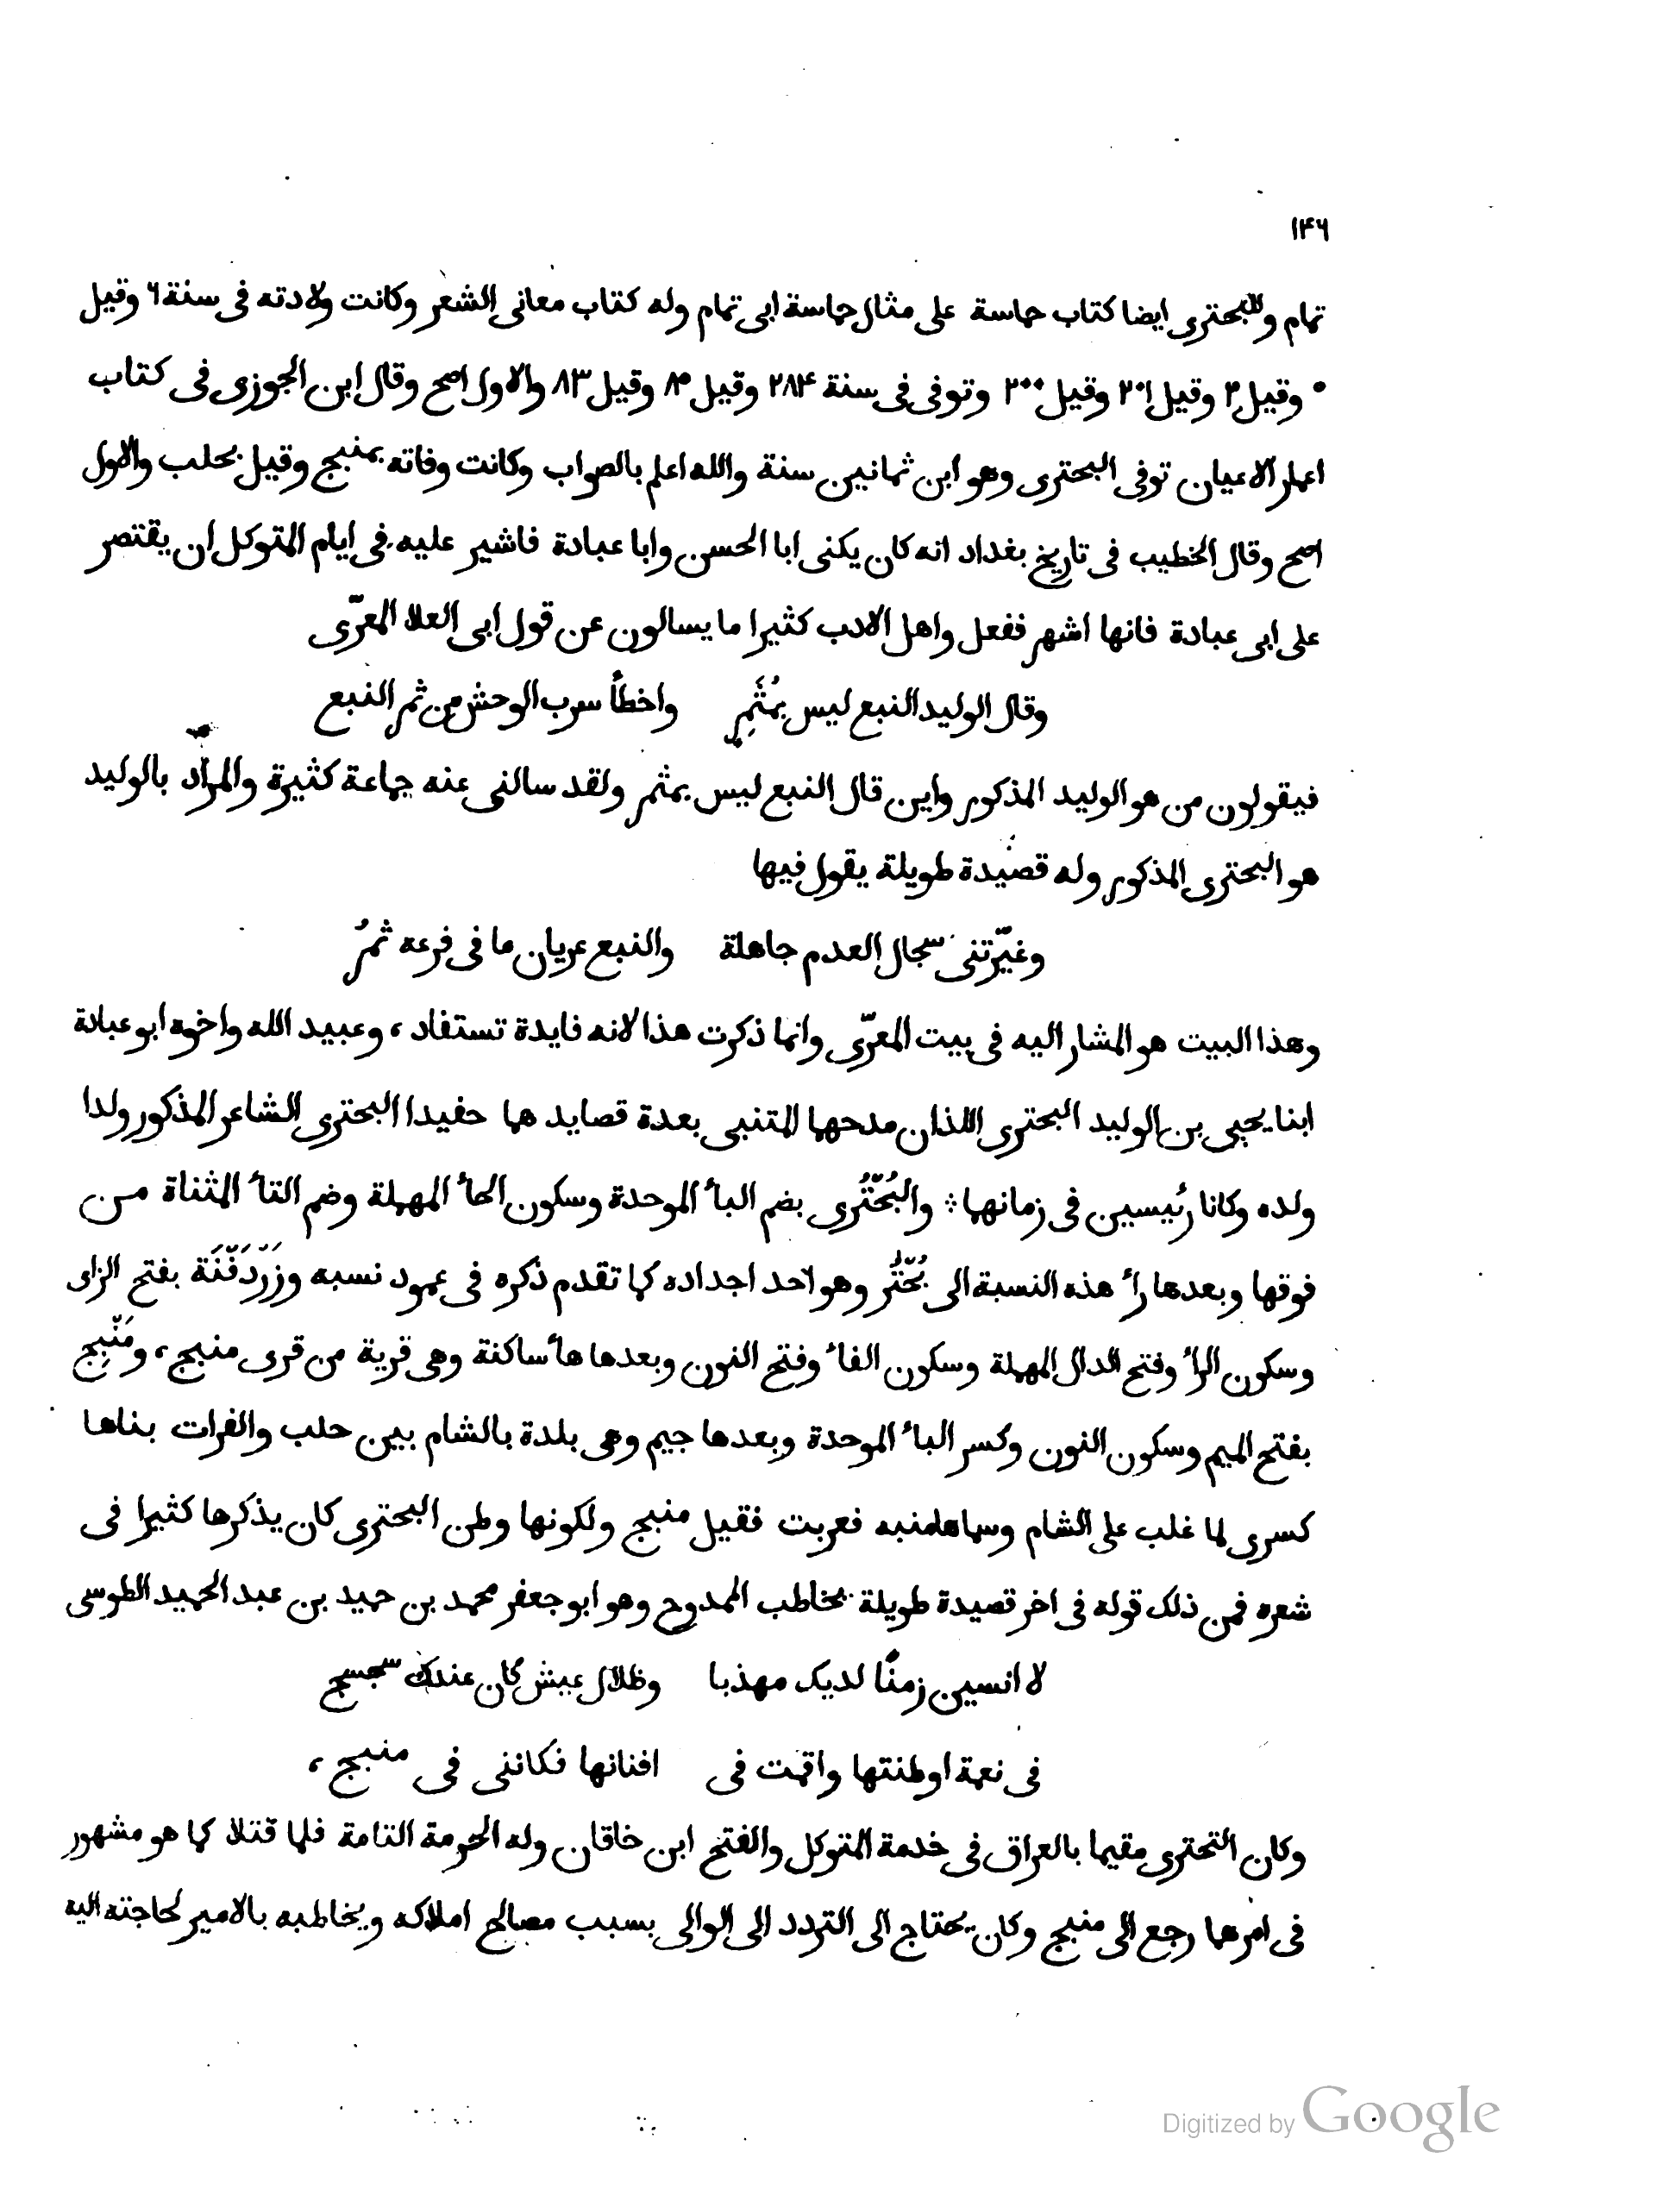 ۱۴۶
تمام وللبحترى ايضا كتاب حماسة على مثال حماسة ابى تمام وله كتاب معانى الشعر وكانت ولادته فى سنة ٦ وقيل
٥ وقيل ٢ وقيل ٢٠١ وقيل ٢٠٠ وتوفى فى سنة ٢٨٤ وقيل ٨٥ وقيل ٨٣ والاول اصح وقال ابن الجوزى فى كتاب
اعمار الاعيان توفى البحترى وهو ابن ثمانين سنة والله اعلم بالصواب وكانت وفاته بمنبج وقيل بحلب والاول
اصح وقال الخطيب فى تاريخ بغداد انه كان يكنى ابا الحسن وابا عبادة فاشير عليه فى ايام المتوكل ان يقتصر
على ابى عبادة فانها اشهر ففعل واهل الادب كثيرا ما يسالون عن قول ابى العلا المعرّى
وقال الوليد النبع ليس بمُثْمِرٍ واخطأ سرب الوحش من ثمر النبع
فيقولون من هو الوليد المذكور واين قال النبع ليس بمثمر ولقد سالنى عنه جماعة كثيرة والمراد بالوليد
هو البحترى المذكور وله قصيدة طويلة يقول فيها
وغيّرتنى سجال العدم جاهلة والنبع عريان ما فى فرعه ثمرُ
وهذا البيت هو المشار اليه فى بيت المعرّى وانما ذكرت هذا لانه فايدة تستفاد، وعبيد الله واخوه ابو عبادة
ابنا يحيى بن الوليد البحترى اللذان مدحهما المتنبى بعدة قصايد هما حفيدا البحترى الشاعر المذكور ولدا
ولده وكانا رئيسين فى زمانهما ؞ والبُحْتُرى بضم البأ الموحدة وسكون الحأ المهملة وضم التأ المثناة من
فوقها وبعدها رأ هذه النسبة الى بُحْتُر وهو احد اجداده كما تقدم ذكره فى عمود نسبه وزَرْدَفْنَة بفتح الزاى
وسكون الرأ وفتح الدال المهملة وسكون الفأ وفتح النون وبعدها هأ ساكنة وهى قرية من قرى منبج، ومَنْبِج
بفتح الميم وسكون النون وكسر البأ الموحدة وبعدها جيم وهى بلدة بالشام بين حلب والفرات بناها
كسرى لما غلب على الشام وسماها منبه فعربت فقيل منبج ولكونها وطن البحترى كان يذكرها كثيرا فى
شعره فمن ذلك قوله فى اخر قصيدة طويلة يخاطب الممدوح وهو ابو جعفر محمد بن حميد بن عبد الحميد الطوسى
لا انسين زمنًا لديك مهذبا وظلال عيش كان عندك سجسج
فى نعمة اوطنتها واقمت فى افنانها فكاننى فى منبج،
وكان التحترى مقيما بالعراق فى خدمة المتوكل والفتح ابن خاقان وله الحرمة التامة فلما قتلا كما هو مشهور
فى امرهما رجع الى منبج وكان يحتاج الى التردد الى الوالى بسبب مصالح املاكه ويخاطبه بالامير لحاجته اليه
Digitized by Google